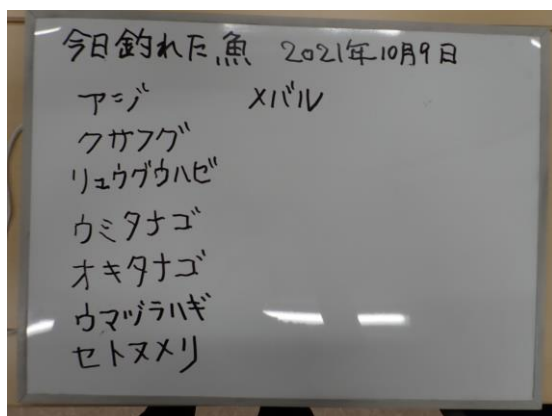 今日釣れた魚 2021年10月9日
アジ メバル
クサフグ
リュウグウハゼ
ウミタナゴ
オキタナゴ
ウマヅラハギ
セトヌメリ